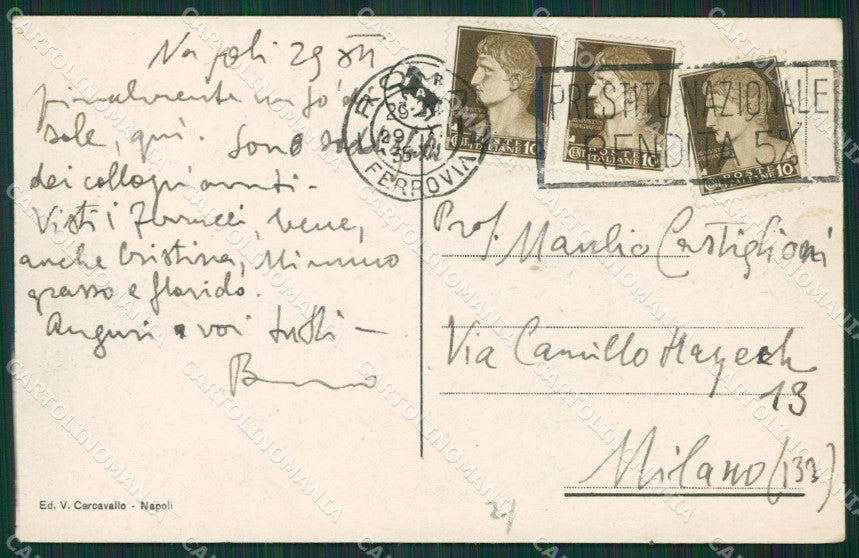 Napoli 29 XII
finalmente un po' di
sole, qui. Sono
dei colloqui avuti.
Visti i Ferrucci, bene,
anche Cristina, Mimmo
grasso e florido.
Auguri a voi tutti —
Bruno
Ed. V. Carcavallo - Napoli
ROMA
29
35 XIV
FERROVIA
PRESTITO NAZIONALE
RENDITA 5%
POSTE
ITALIANE
CENT 10
POSTE
ITALIANE
CENT 10
POSTE
ITALIANE
CENT 10
Prof. Manlio Castiglioni
Via Camillo Hayech
13
Milano (133)
CARTOLINOMANIA